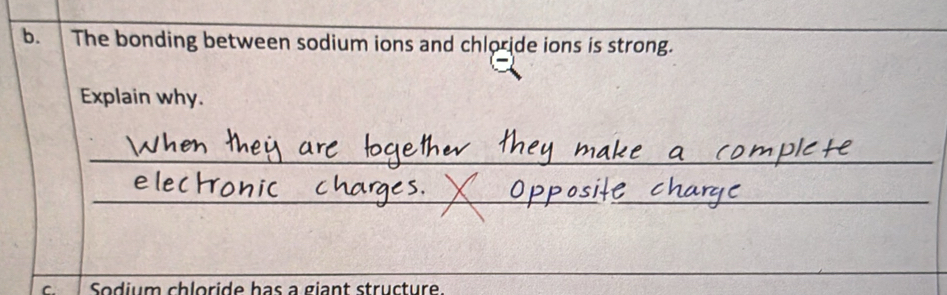 b. The bonding between sodium ions and chloride ions is strong.
Explain why.
When they are together they make a complete
electronic charges. X opposite charge
c. Sodium chloride has a giant structure.